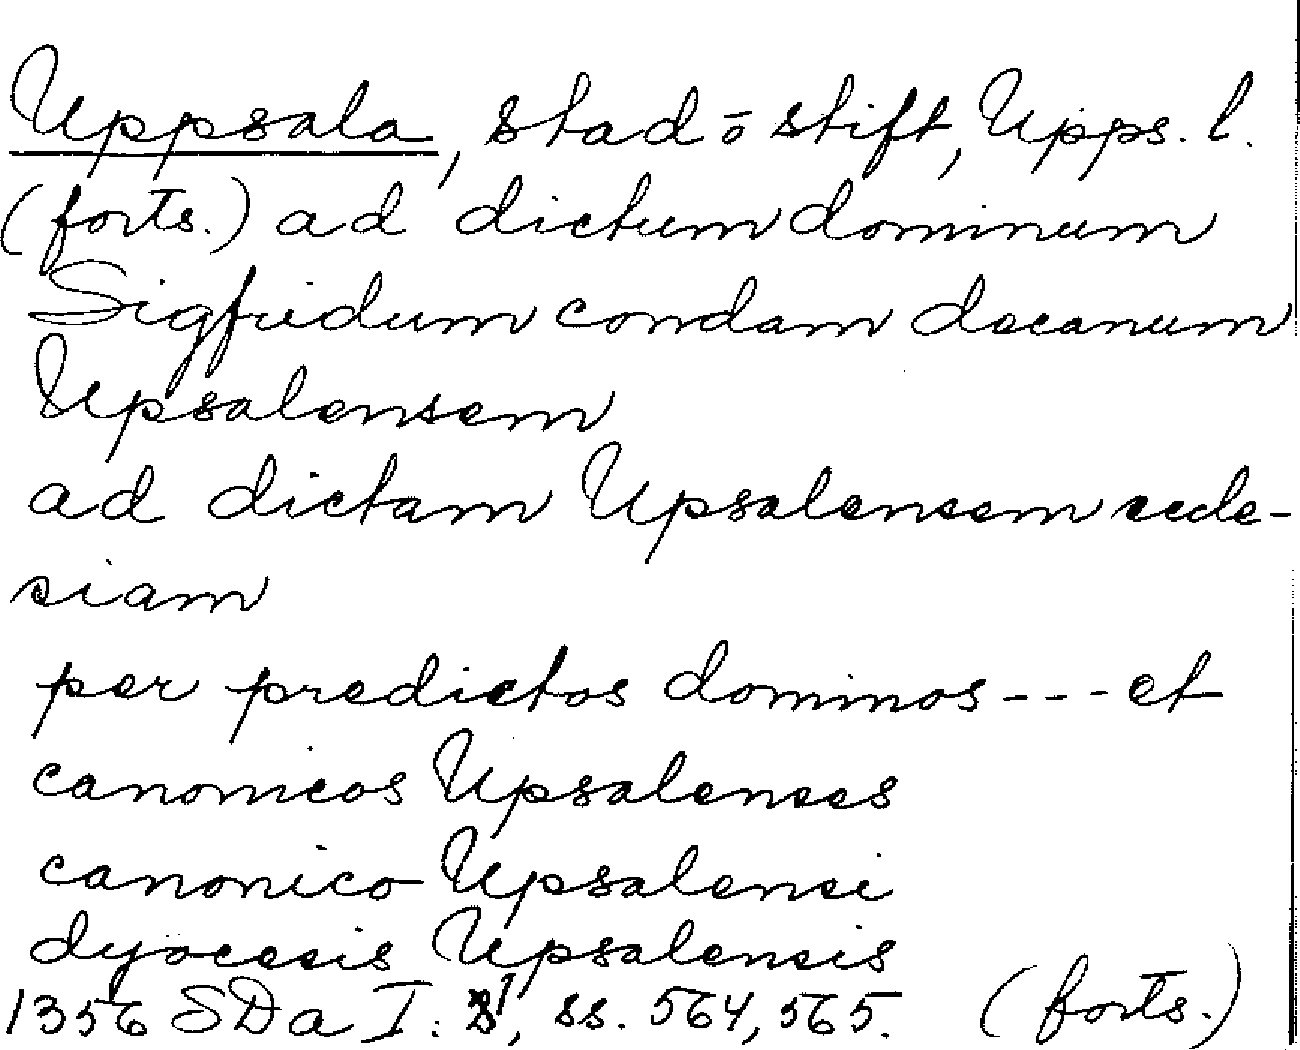 Uppsala, stad o stift, Upps. l.
(forts.) ad dictum dominum
Sigfridum condam decanum
Upsalensem
ad dictam Upsalensem eccle-
siam
per predictos dominos --- et
canonicos Upsalenses
canonico Upsalensi
dyocesis Upsalensis
1356 SDa I: ss. 564, 565. (forts.)